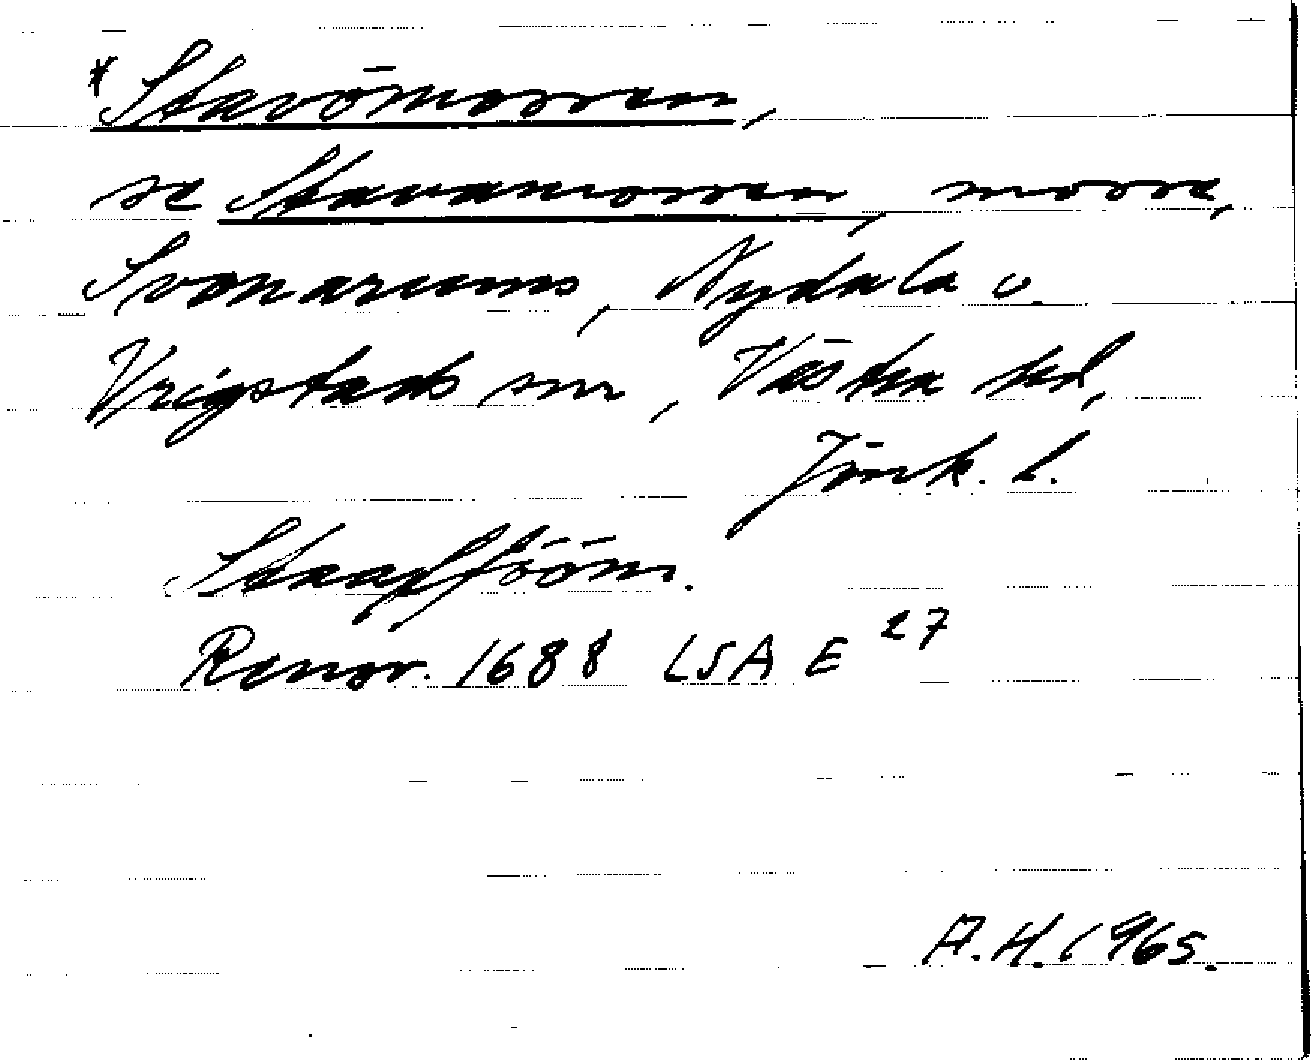 *Stavömossen,
se Stavamossen, mosse,
Svenarums, Nydala o.
Vrigstads snr, Västra hd,
Jönk. l.
Staafsjöön.
Renov. 1688 LSA E 27
A.H. 1965.